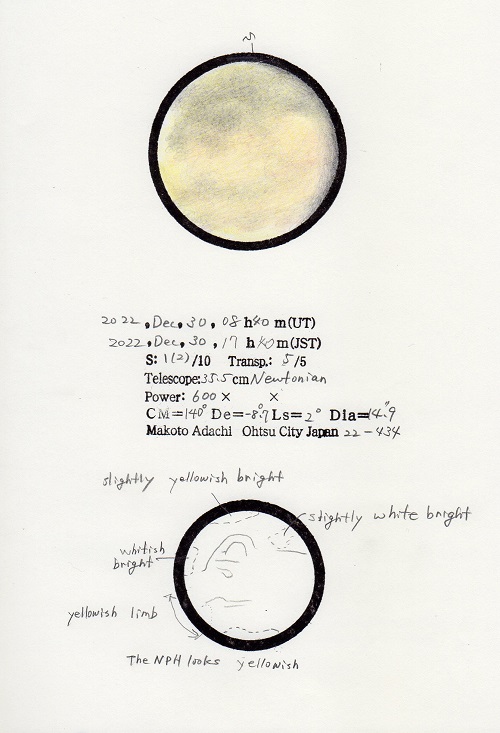 2022, Dec, 30, 08 h 40 m(UT)
2022, Dec, 30, 17 h 40 m(JST)
S: 1(2)/10 Transp.: 5/5
Telescope: 35.5 cm Newtonian
Power: 600 × ×
CM=140° De=-8.7° Ls=2° Dia=14.9"
Makoto Adachi Ohtsu City Japan 22-434
slightly yellowish bright
slightly white bright
whitish
bright
yellowish limb
The NPH looks yellowish